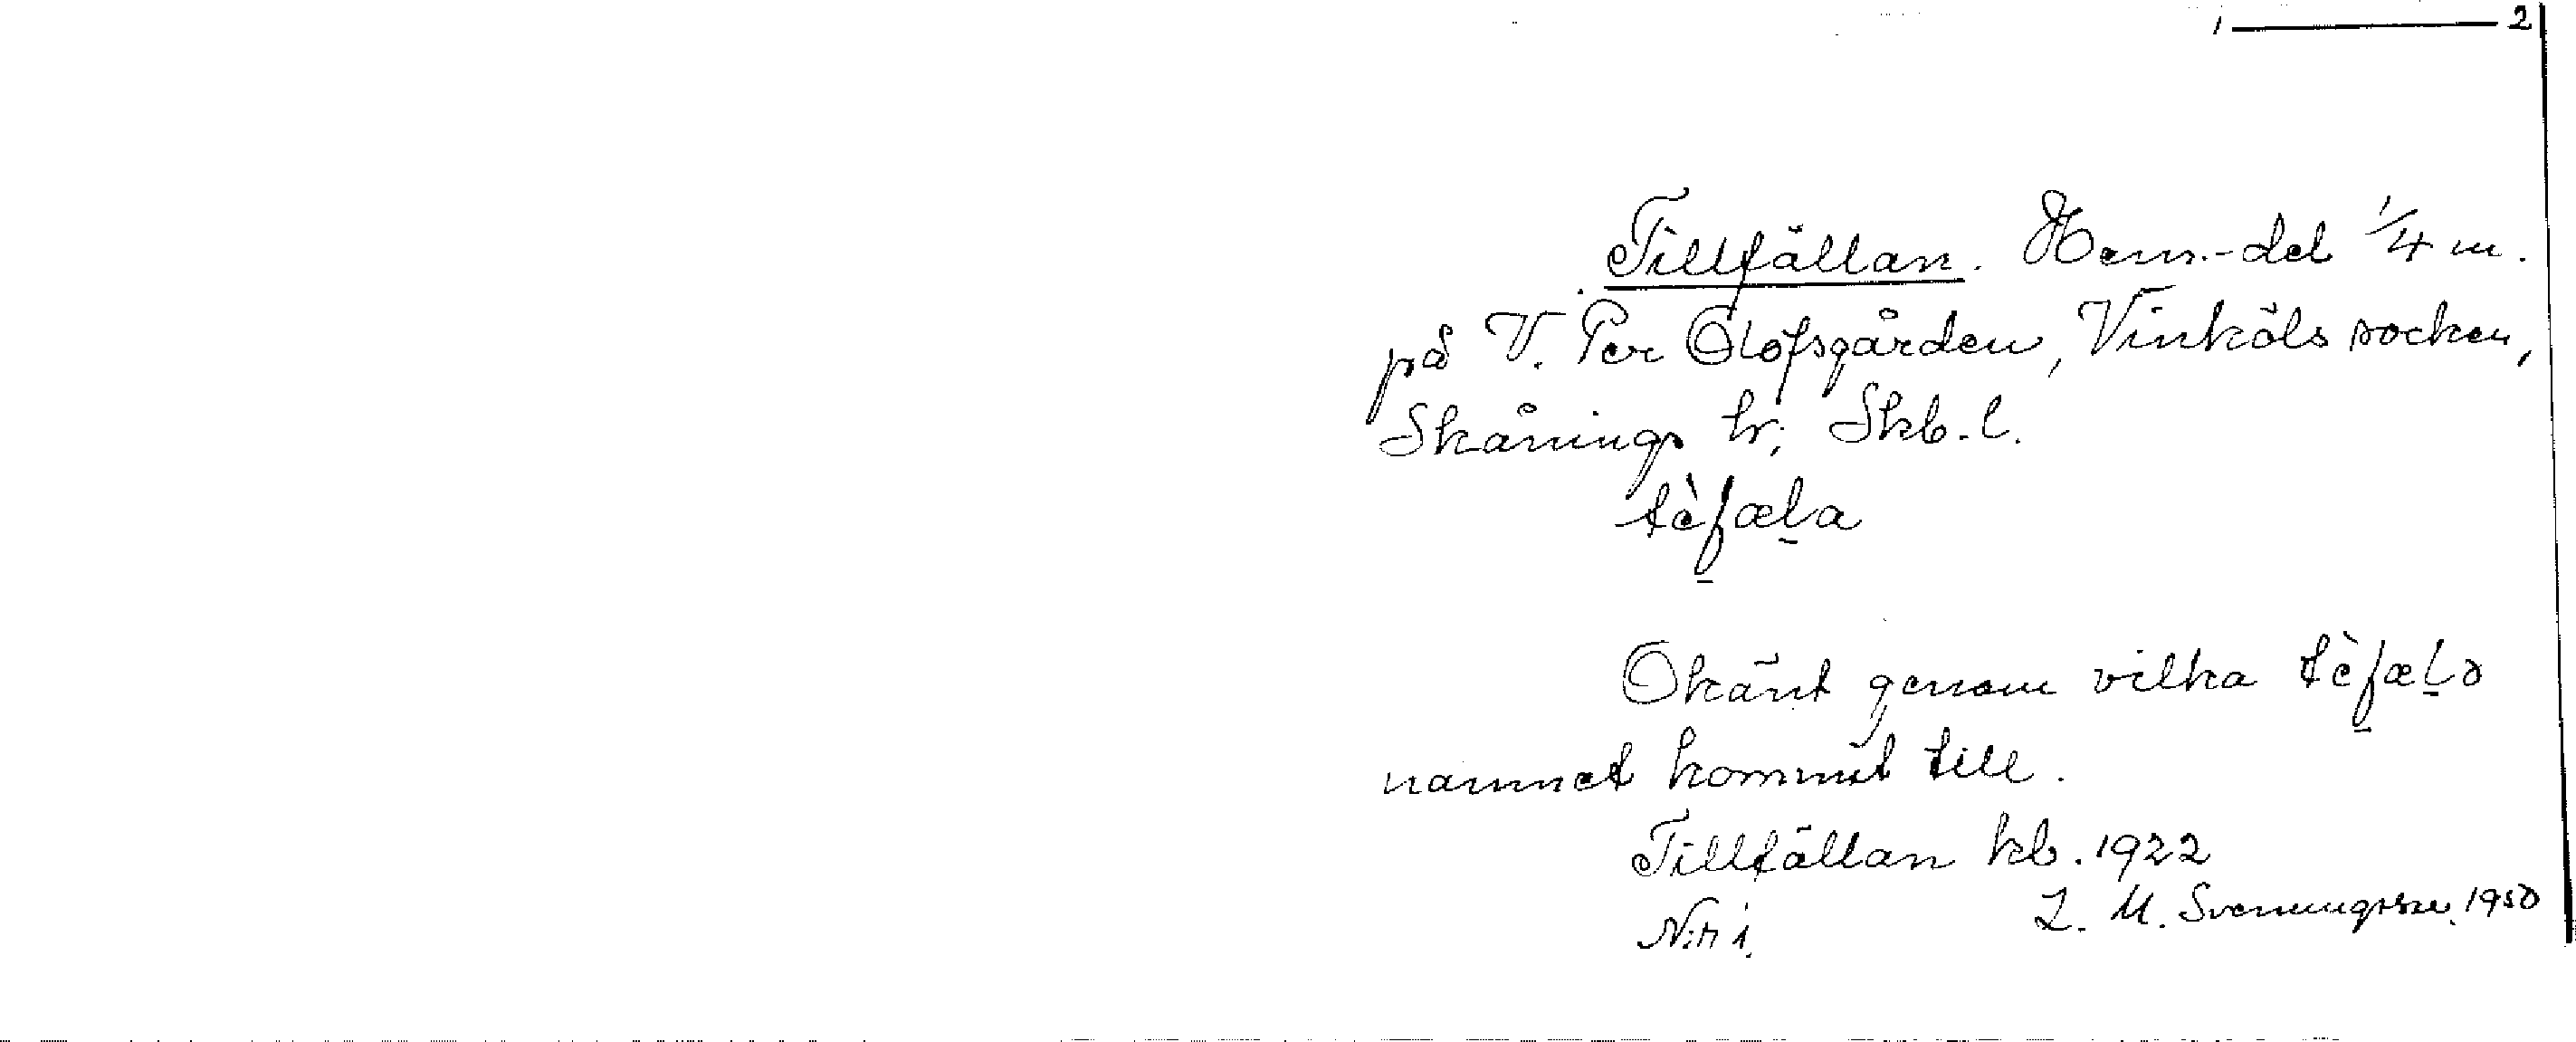 1 — 2
Tillfällan. Hem.-del 1/4 m.
på V. Per Olofsgården, Vinköls socken,
Skånings hr; Skb. l.
tèfæl̠a
Okänt genom vilka tèfæl̠ə
namnet kommit till.
Tillfällan kb. 1922
N:r 1. L. M. Svenungsson 1950